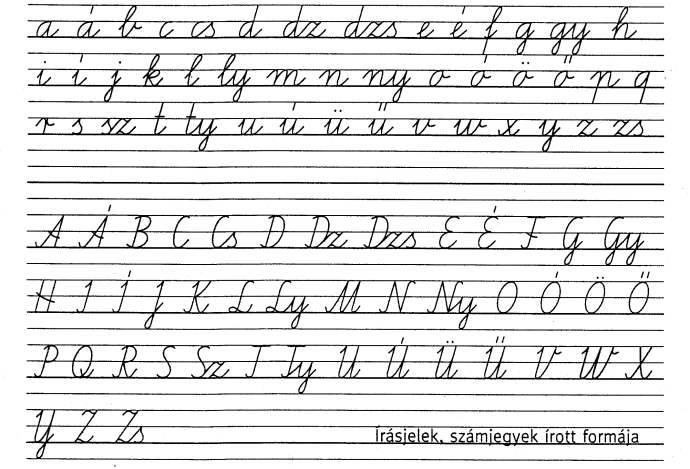 a á b c cs d dz dzs e é f g gy h
i í j k l ly m n ny o ó ö ő p q
r s sz t ty u ú ü ű v w x y z zs
A Á B C Cs D Dz Dzs E É F G Gy
H I Í J K L Ly M N Ny O Ó Ö Ő
P Q R S Sz T Ty U Ú Ü Ű V W X
Y Z Zs
írásjelek, számjegyek írott formája